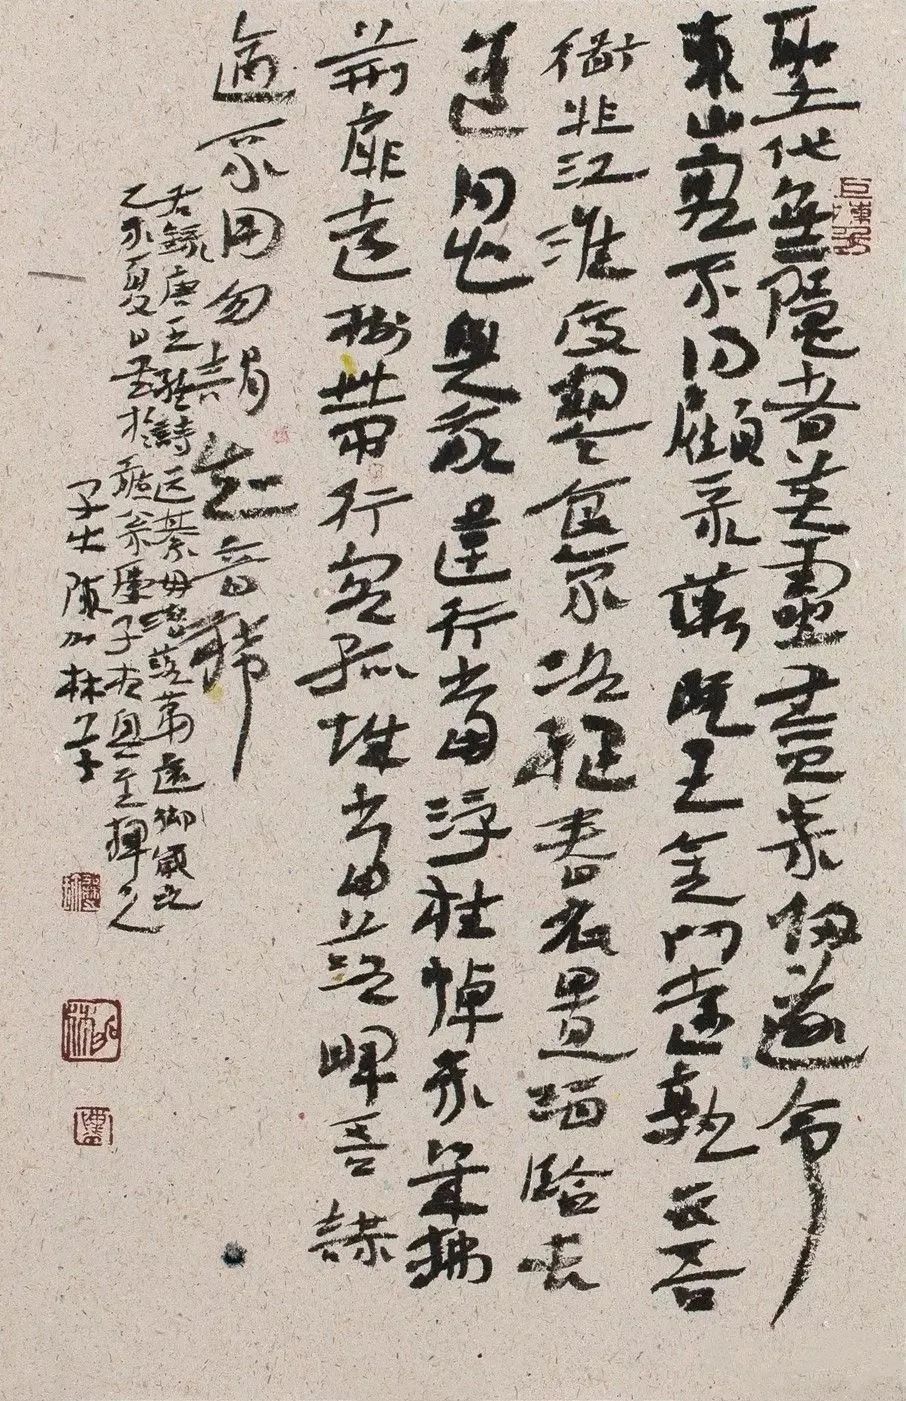 聖代無隱者英靈盡來歸遂令
東山客不同顧采薇既至金門遠孰云吾
衜非江淮度寒食京洛縫春衣置酒臨長
道同心與我違行當浮桂棹未幾拂
荊扉遠樹帶行客孤城當落暉吾謀
適不用勿謂知音稀
右錄唐王維詩送綦毋潛落第還鄉
乙未夏日書於翁廬子夜興至揮之
陳林